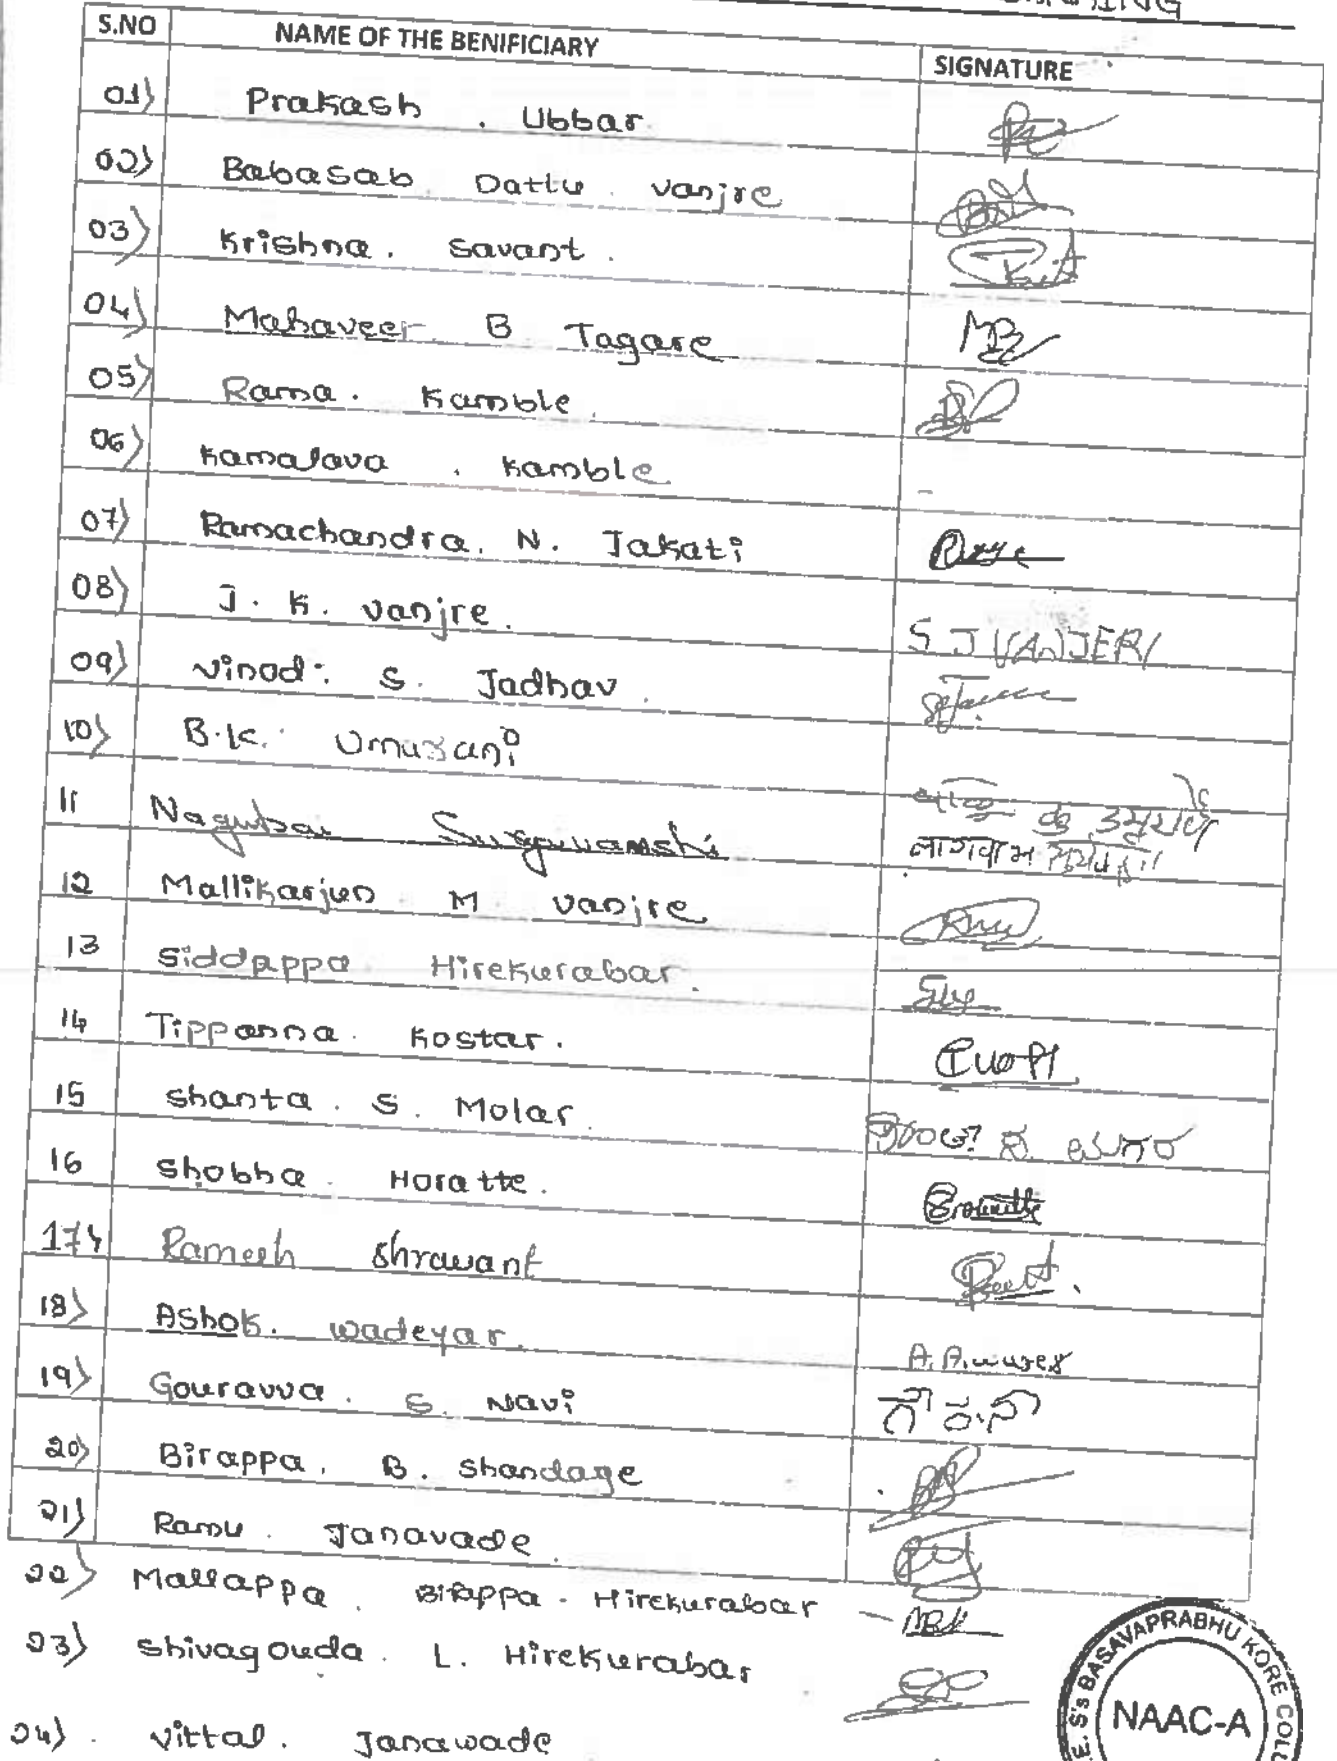 S.NO NAME OF THE BENIFICIARY SIGNATURE
01) Prakash . Ubbar
02) Babasab Dattu . Vanjre
03) Krishna . Savant .
04) Mahaveer B Tagare
05) Rama . Kamble
06) Kamalava . Kamble -
07) Ramachandra . N . Jakati
08) J . K . Vanjre . S J VANJERI
09) Vinod . S . Jadhav
10) B.K. Umarani
11 Nagubai Suryavamshi
12 Mallikarjun M Vanjre
13 Siddappa Hirekurabar .
14 Tippanna . Kostar .
15 Shanta . S . Molar
16 Shobha . Horatte .
17) Ramesh Shrawant
18) Ashok . Wadeyar .
19) Gouravva . S . Navi
20) Birappa . B . Shandage
21) Ramu . Janavade
22) Mallappa . Birappa . Hirekurabar
23) Shivagouda . L . Hirekurabar
24) . Vittal . Janawade
E. S's BASAVAPRABHU KORE
NAAC-A